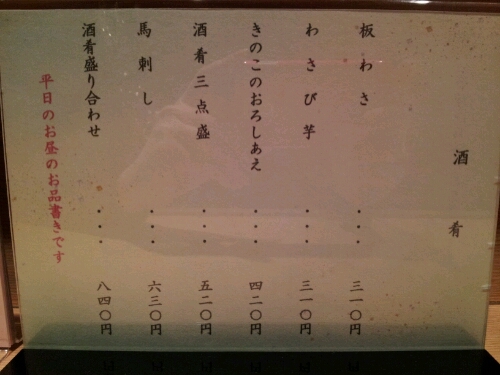 酒肴
板わさ・・・三一〇円
わさび芋・・・三一〇円
きのこのおろしあえ・・・四二〇円
酒肴三点盛・・・五二〇円
馬刺し・・・六三〇円
酒肴盛り合わせ・・・八四〇円
平日のお昼のお品書きです